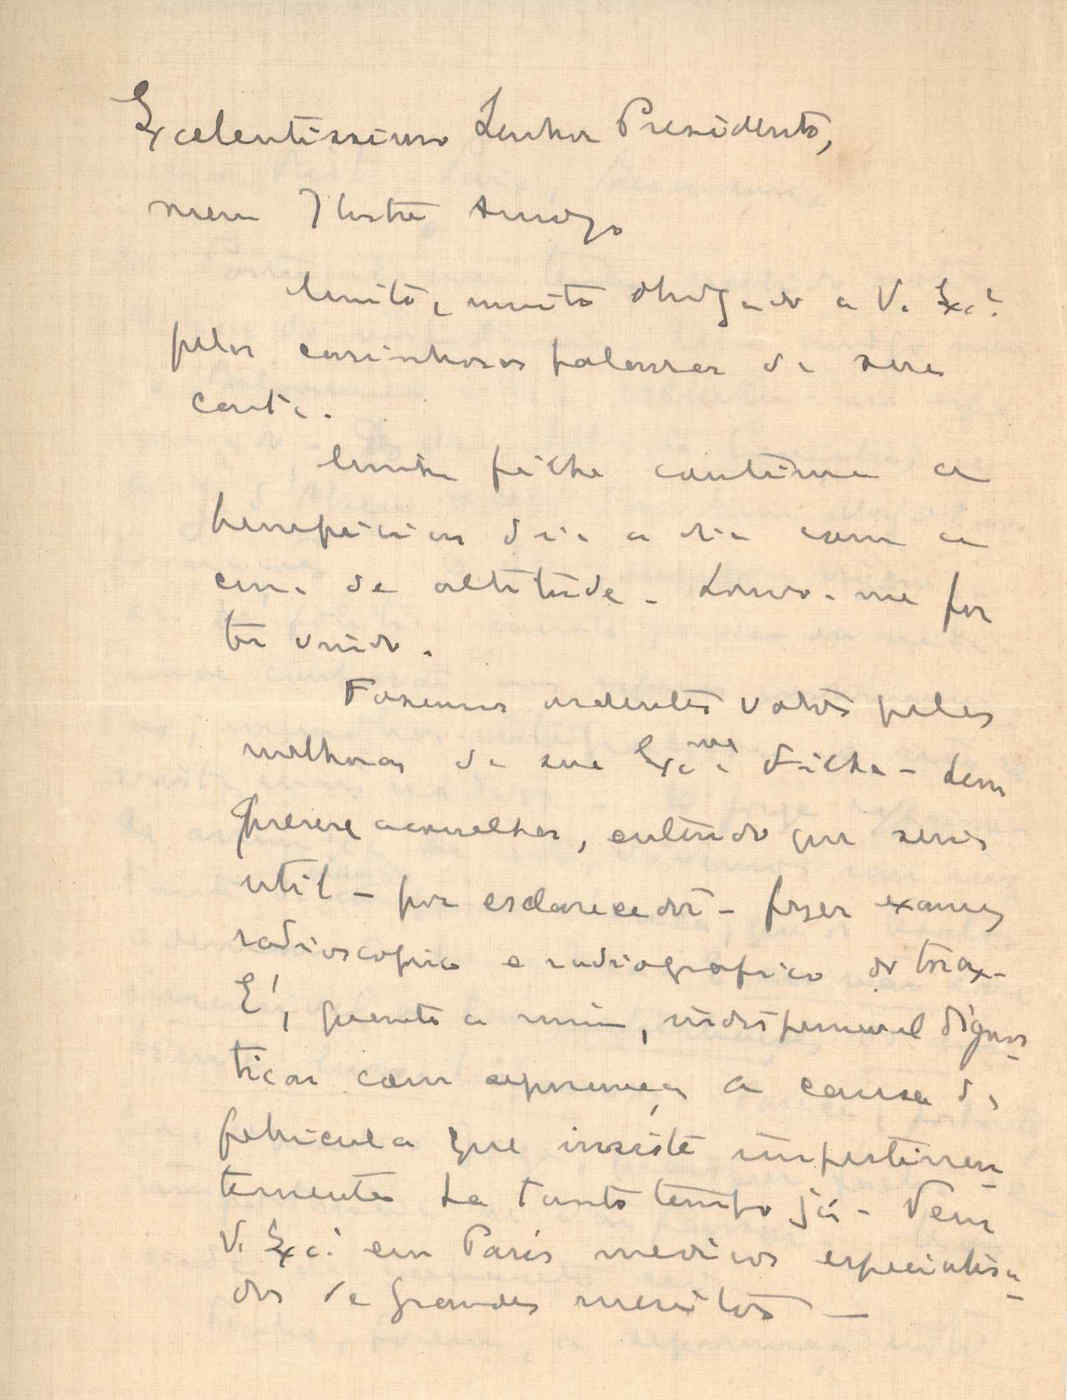 Excelentissimo Senhor Presidente,
meu Ilustre Amigo
Muito, muito obrigado a V. Exc.ª
pelas carinhosas palavras de sua
carta.
Minha filha continua a
beneficiar dia a dia com a
cura de altitude. Louvo-me por
ter vindo.
Fazemos ardentes votos pelas
melhoras de sua Exc.ma Filha - Sem
querer aconselhar, entendo que seria
util - por esclarecedor - fazer exames
radioscopico e radiografico do torax -
É, quanto a mim, indispensavel dignos-
ticar com segurança a causa da
febricula que insiste impertinen-
temente ha tanto tempo já - Tem
V. Exc.ª em Paris medicos especialisa-
dos de grandes meritos -